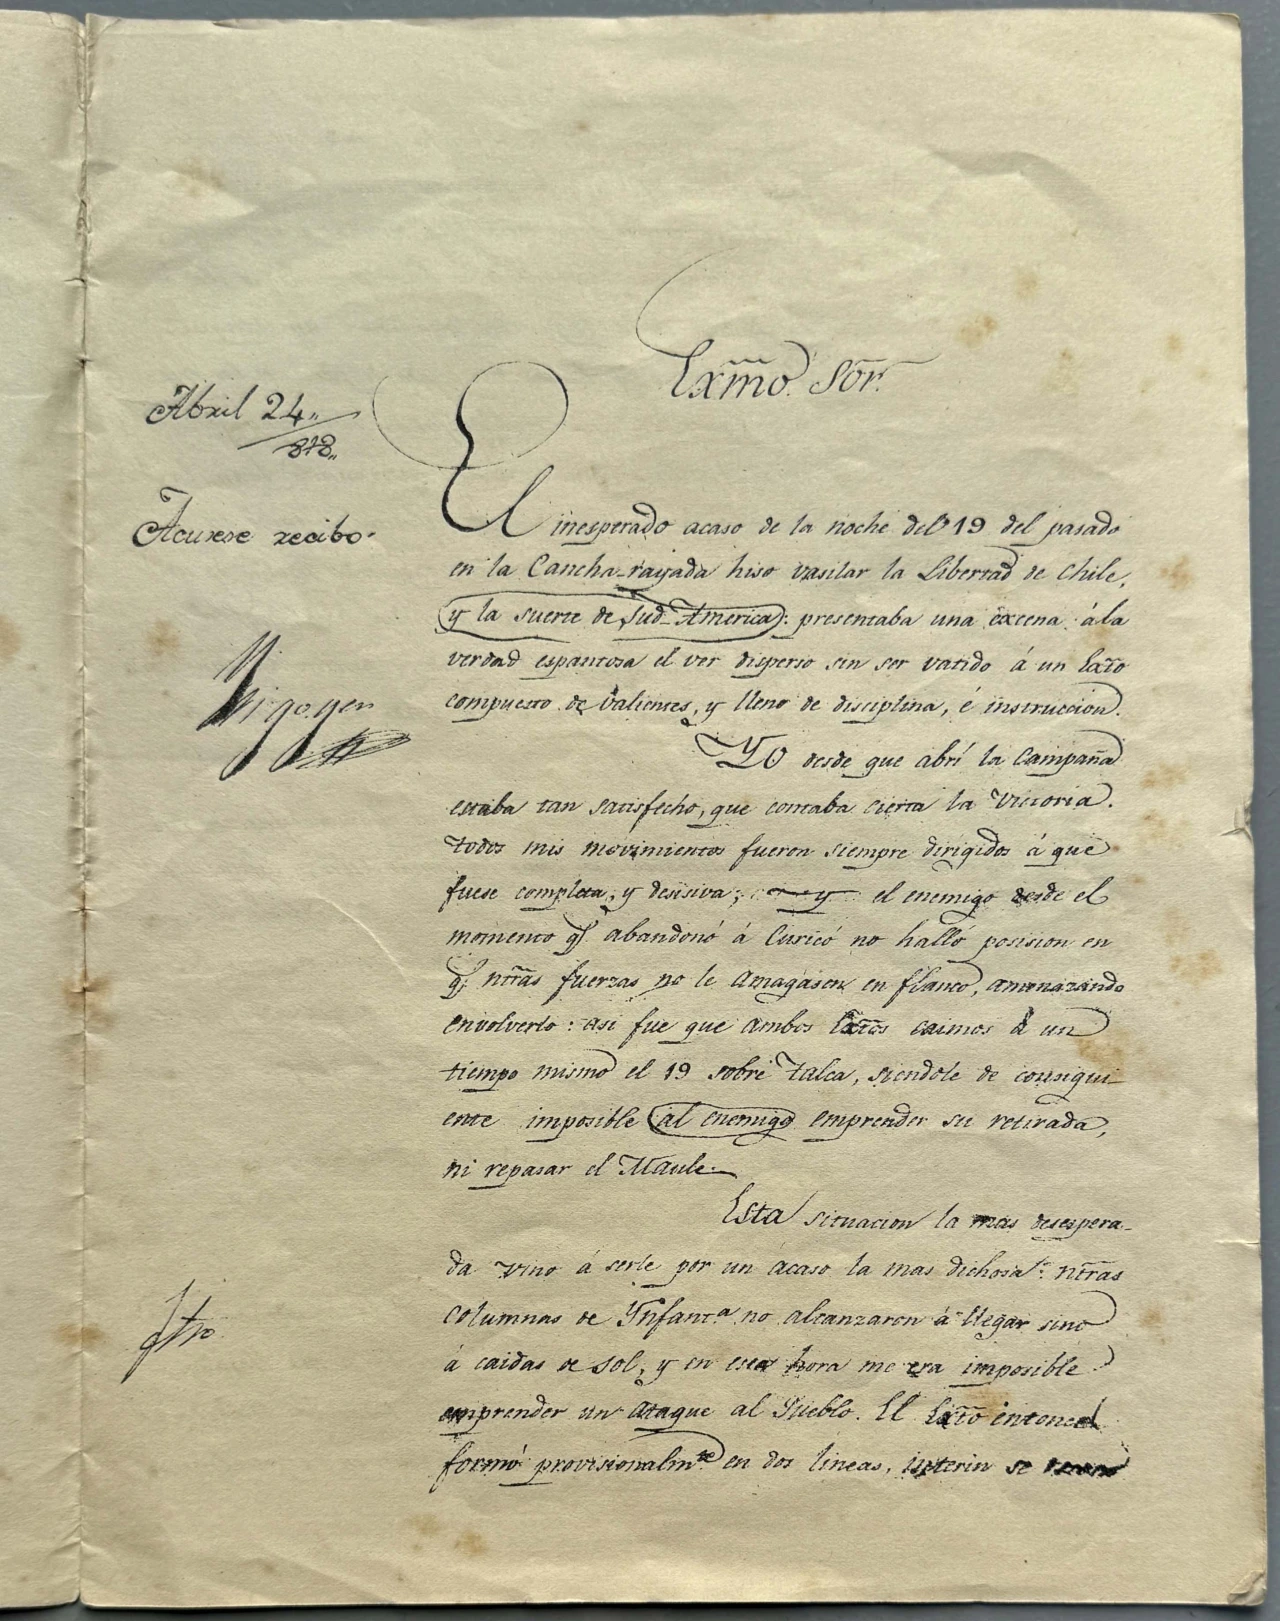 Exmo. Sor.
Abril 24,,
818,,
Acusese recibo.
Yrigoyen
El inesperado acaso de la noche del 19 del pasado
en la Cancha-rayada hiso vasilar la Libertad de Chile,
y la suerte de Sud-America: presentaba una excena á la
verdad espantosa el ver disperso sin ser vatido á un Exto
compuesto de valientes, y lleno de disciplina, é instruccion.
Yo desde que abrí la Campaña
estaba tan satisfecho, que contaba cierta la Victoria.
Todos mis movimientos fueron siempre dirigidos á que
fuese completa, y desisiva; el enemigo desde el
momento q.e abandonó á Curicó no halló posision en
q.e ntras fuerzas no le amagasen en flanco, amenazando
envolverlo: asi fue que ambos Extos caimos á un
tiempo mismo el 19 sobre Talca, siendole de consigui-
ente imposible al enemigo emprender su retirada,
ni repasar el Maule.
Esta situacion la mas desespera-
da vino á serle por un acaso la mas dichosa: ntras
columnas de Ynfant.a no alcanzaron á llegar sino
á caidas de sol, y en esta hora me era imposible
emprender un ataque al Pueblo. El Exto entonces
formó provisionalm.te en dos lineas, interin se